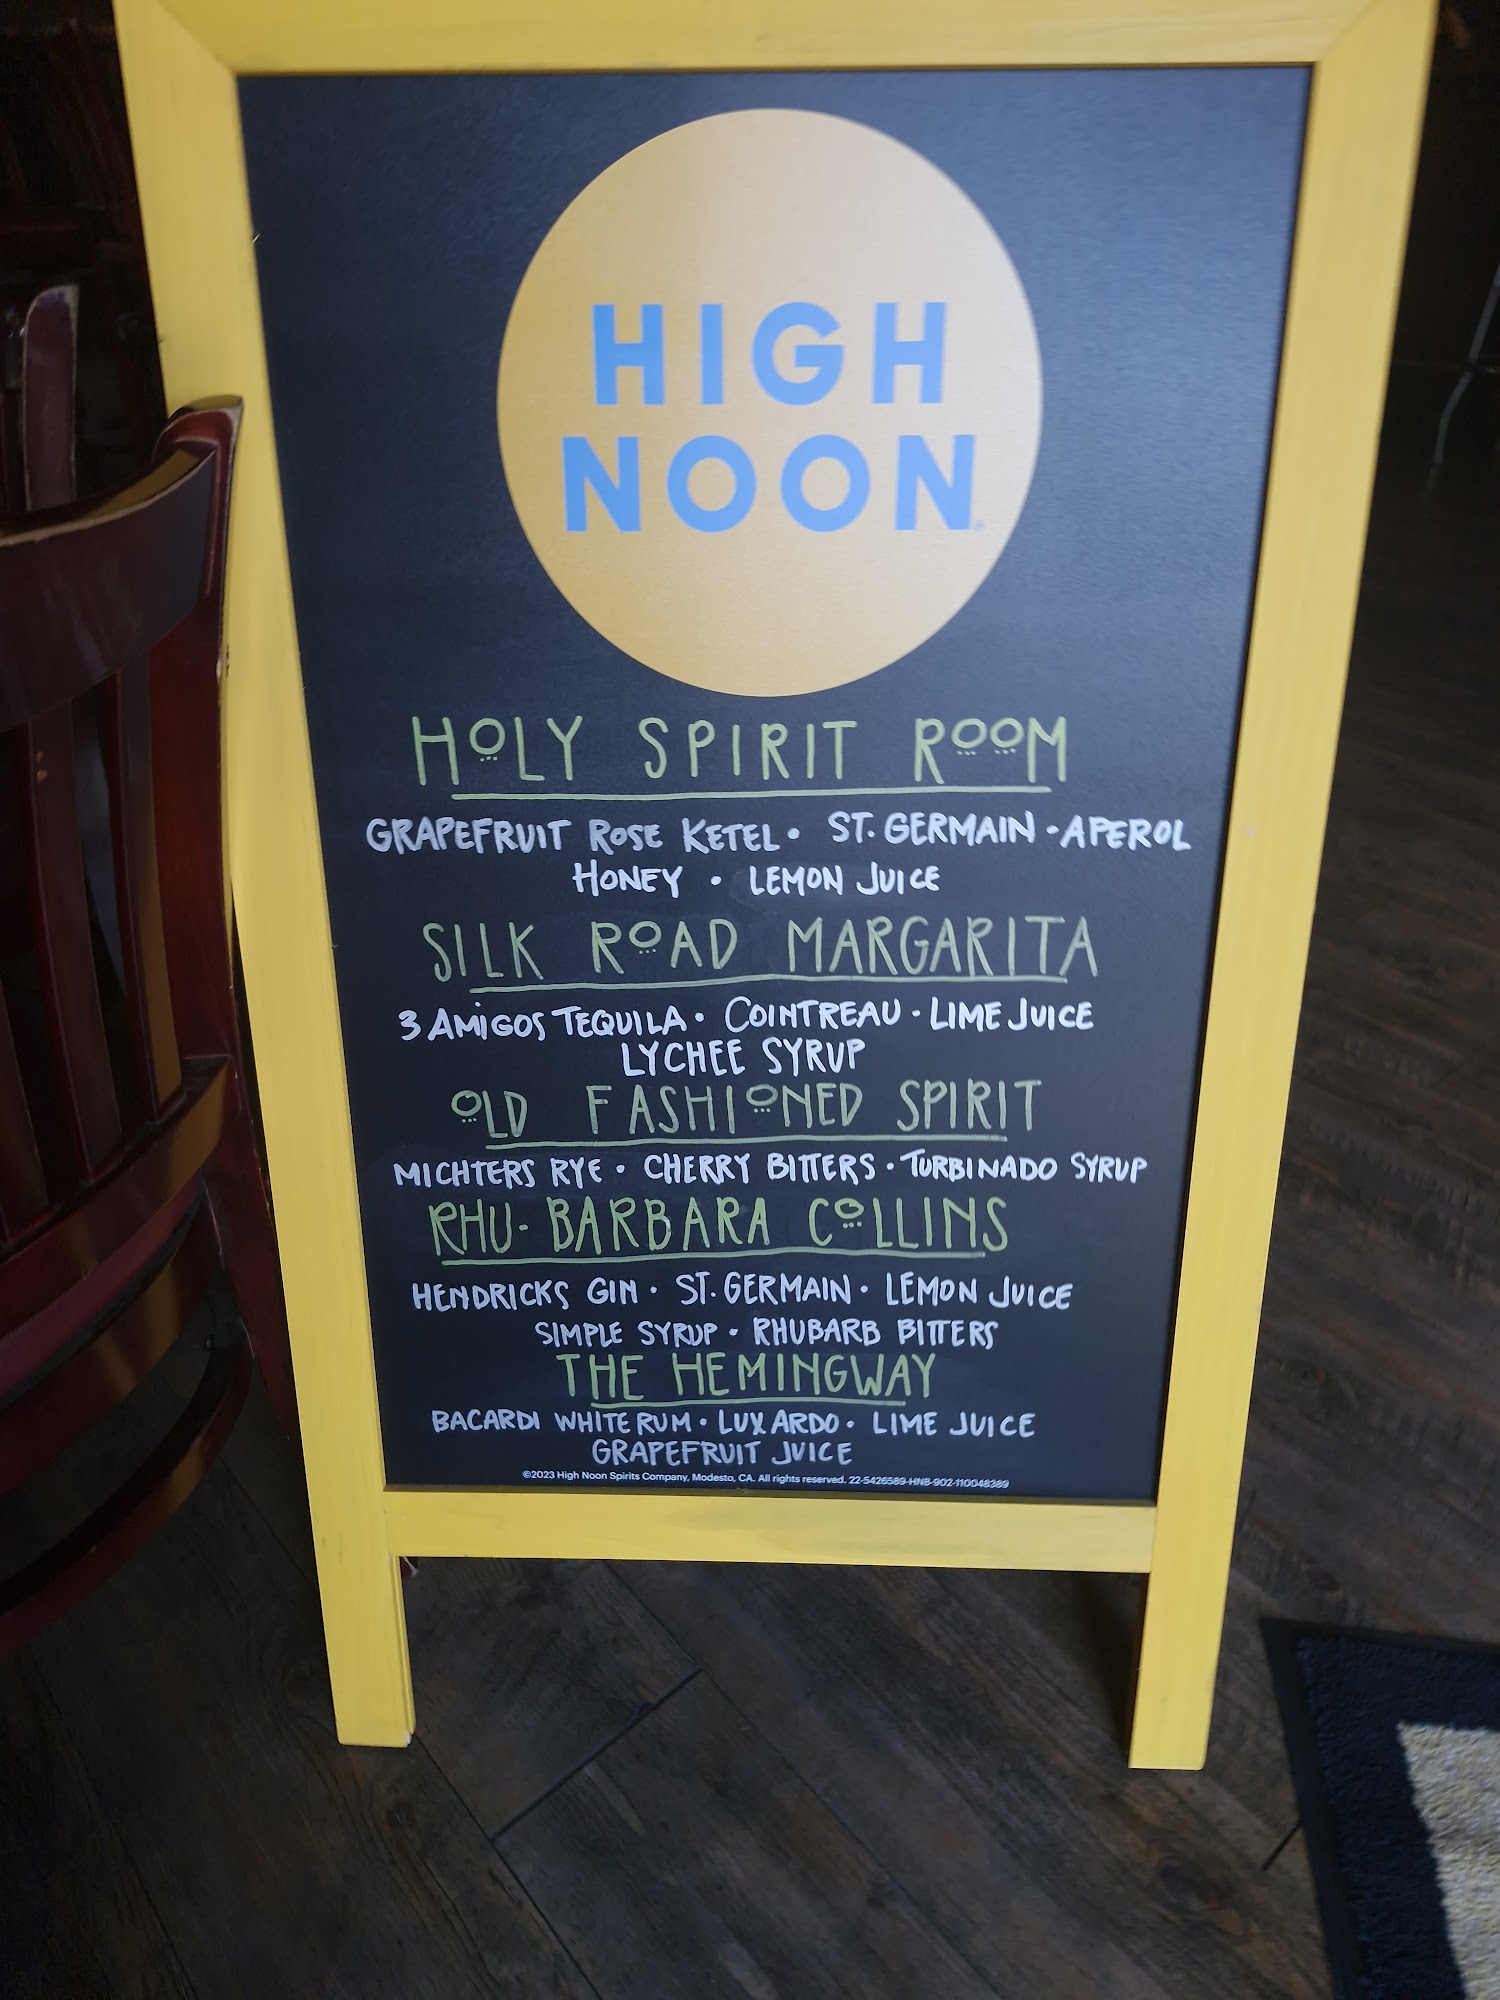 HIGH
NOON
HOLY SPIRIT ROOM
GRAPEFRUIT ROSE KETEL • ST. GERMAIN • APEROL
HONEY • LEMON JUICE
SILK ROAD MARGARITA
3 AMIGOS TEQUILA • COINTREAU • LIME JUICE
LYCHEE SYRUP
OLD FASHIONED SPIRIT
MICHTERS RYE • CHERRY BITTERS • TURBINADO SYRUP
RHU-BARBARA COLLINS
HENDRICKS GIN • ST. GERMAIN • LEMON JUICE
SIMPLE SYRUP • RHUBARB BITTERS
THE HEMINGWAY
BACARDI WHITE RUM • LUXARDO • LIME JUICE
GRAPEFRUIT JUICE
©2023 High Noon Spirits Company, Modesto, CA. All rights reserved. 22-5426589-HNB-902-110048389